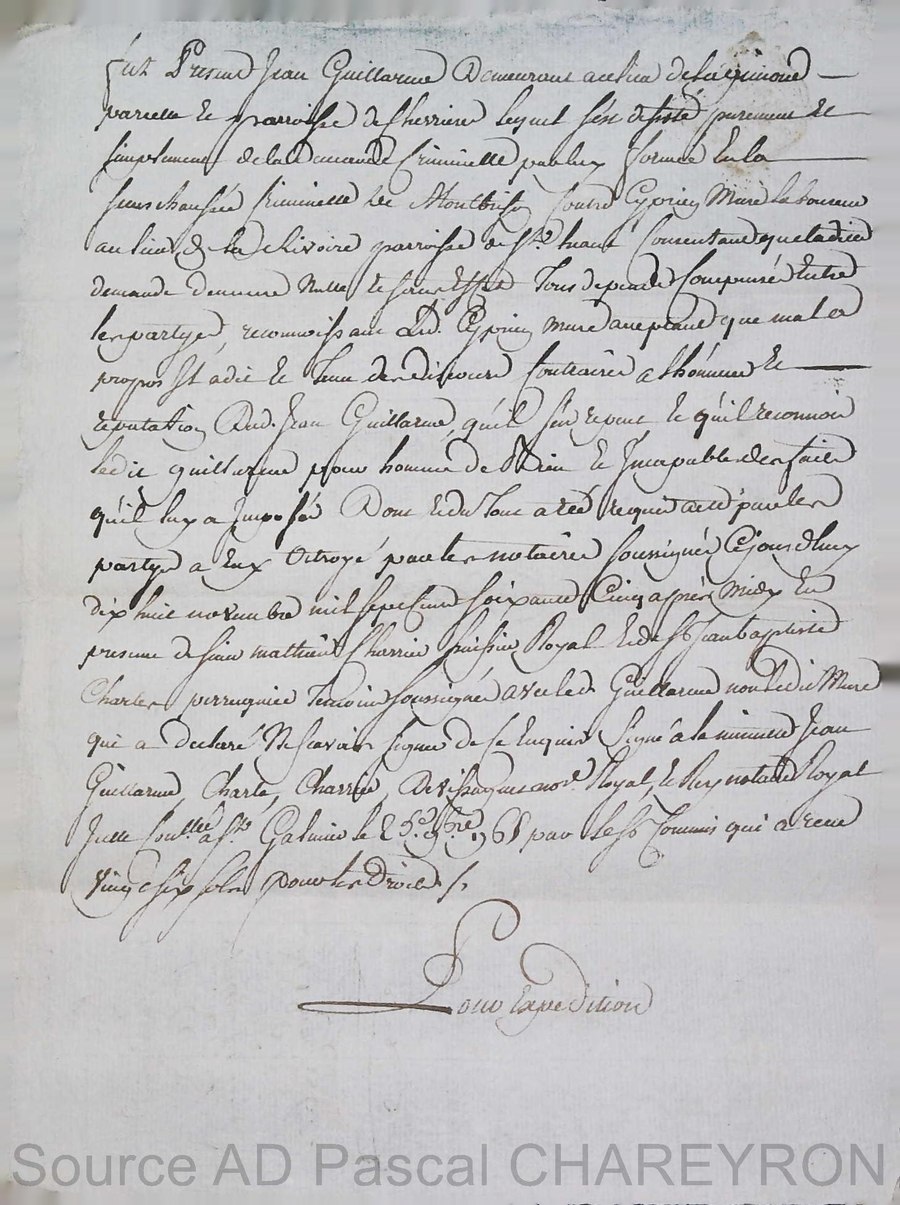 fut Présent Jean Guillarme Demeurant au lieu de la gimond
parcelle et parroisse de Cherrier lequel s'est désisté purement et
simplement de la demande criminelle par luy formée en la
senechaussée Criminelle de Montbrison contre Cyprien Mure laboureur
au lieu de la Rivoire parroisse de St. haut Consentant que ladite
demande demeure nulle et sans Effet Tous depends Compensés Entre
les partyes, reconnoissant Led. Cyprien mure que mal a
propos Il a dit et Tenu des discours Contraires a l'honneur et
reputation Dud. Jean Guillarme, qu'il s'en repent et qu'il reconnoit
ledit guillarme pour homme de Bien et Incapable des faits
qu'il luy a Imposés Dont et du Tout a été requis acte par les
partyes a Eux Octroyé par les notaires soussignés Cejourd'huy
dix huit novembre mil sept cent soixante Cinq après midy En
presence de sieur mathieu Charrier huissier Royal et de Sr. Jean baptiste
Charles perruquier Temoins soussignés avec led. Guillarme non ledit Mure
qui a declaré Ne scavoir signer de ce Enquis signé à la minutte Jean
Guillarme, Charle, Charrier, Devissaguet nore. Royal, et Rey notaire Royal
Jutte Contllée a St. Galmier le 25e. 9bre. 1765 par le Sr. Commis qui a reçu
vingt six sols pour les Droits /.
Pour Expedition
Source AD Pascal CHAREYRON